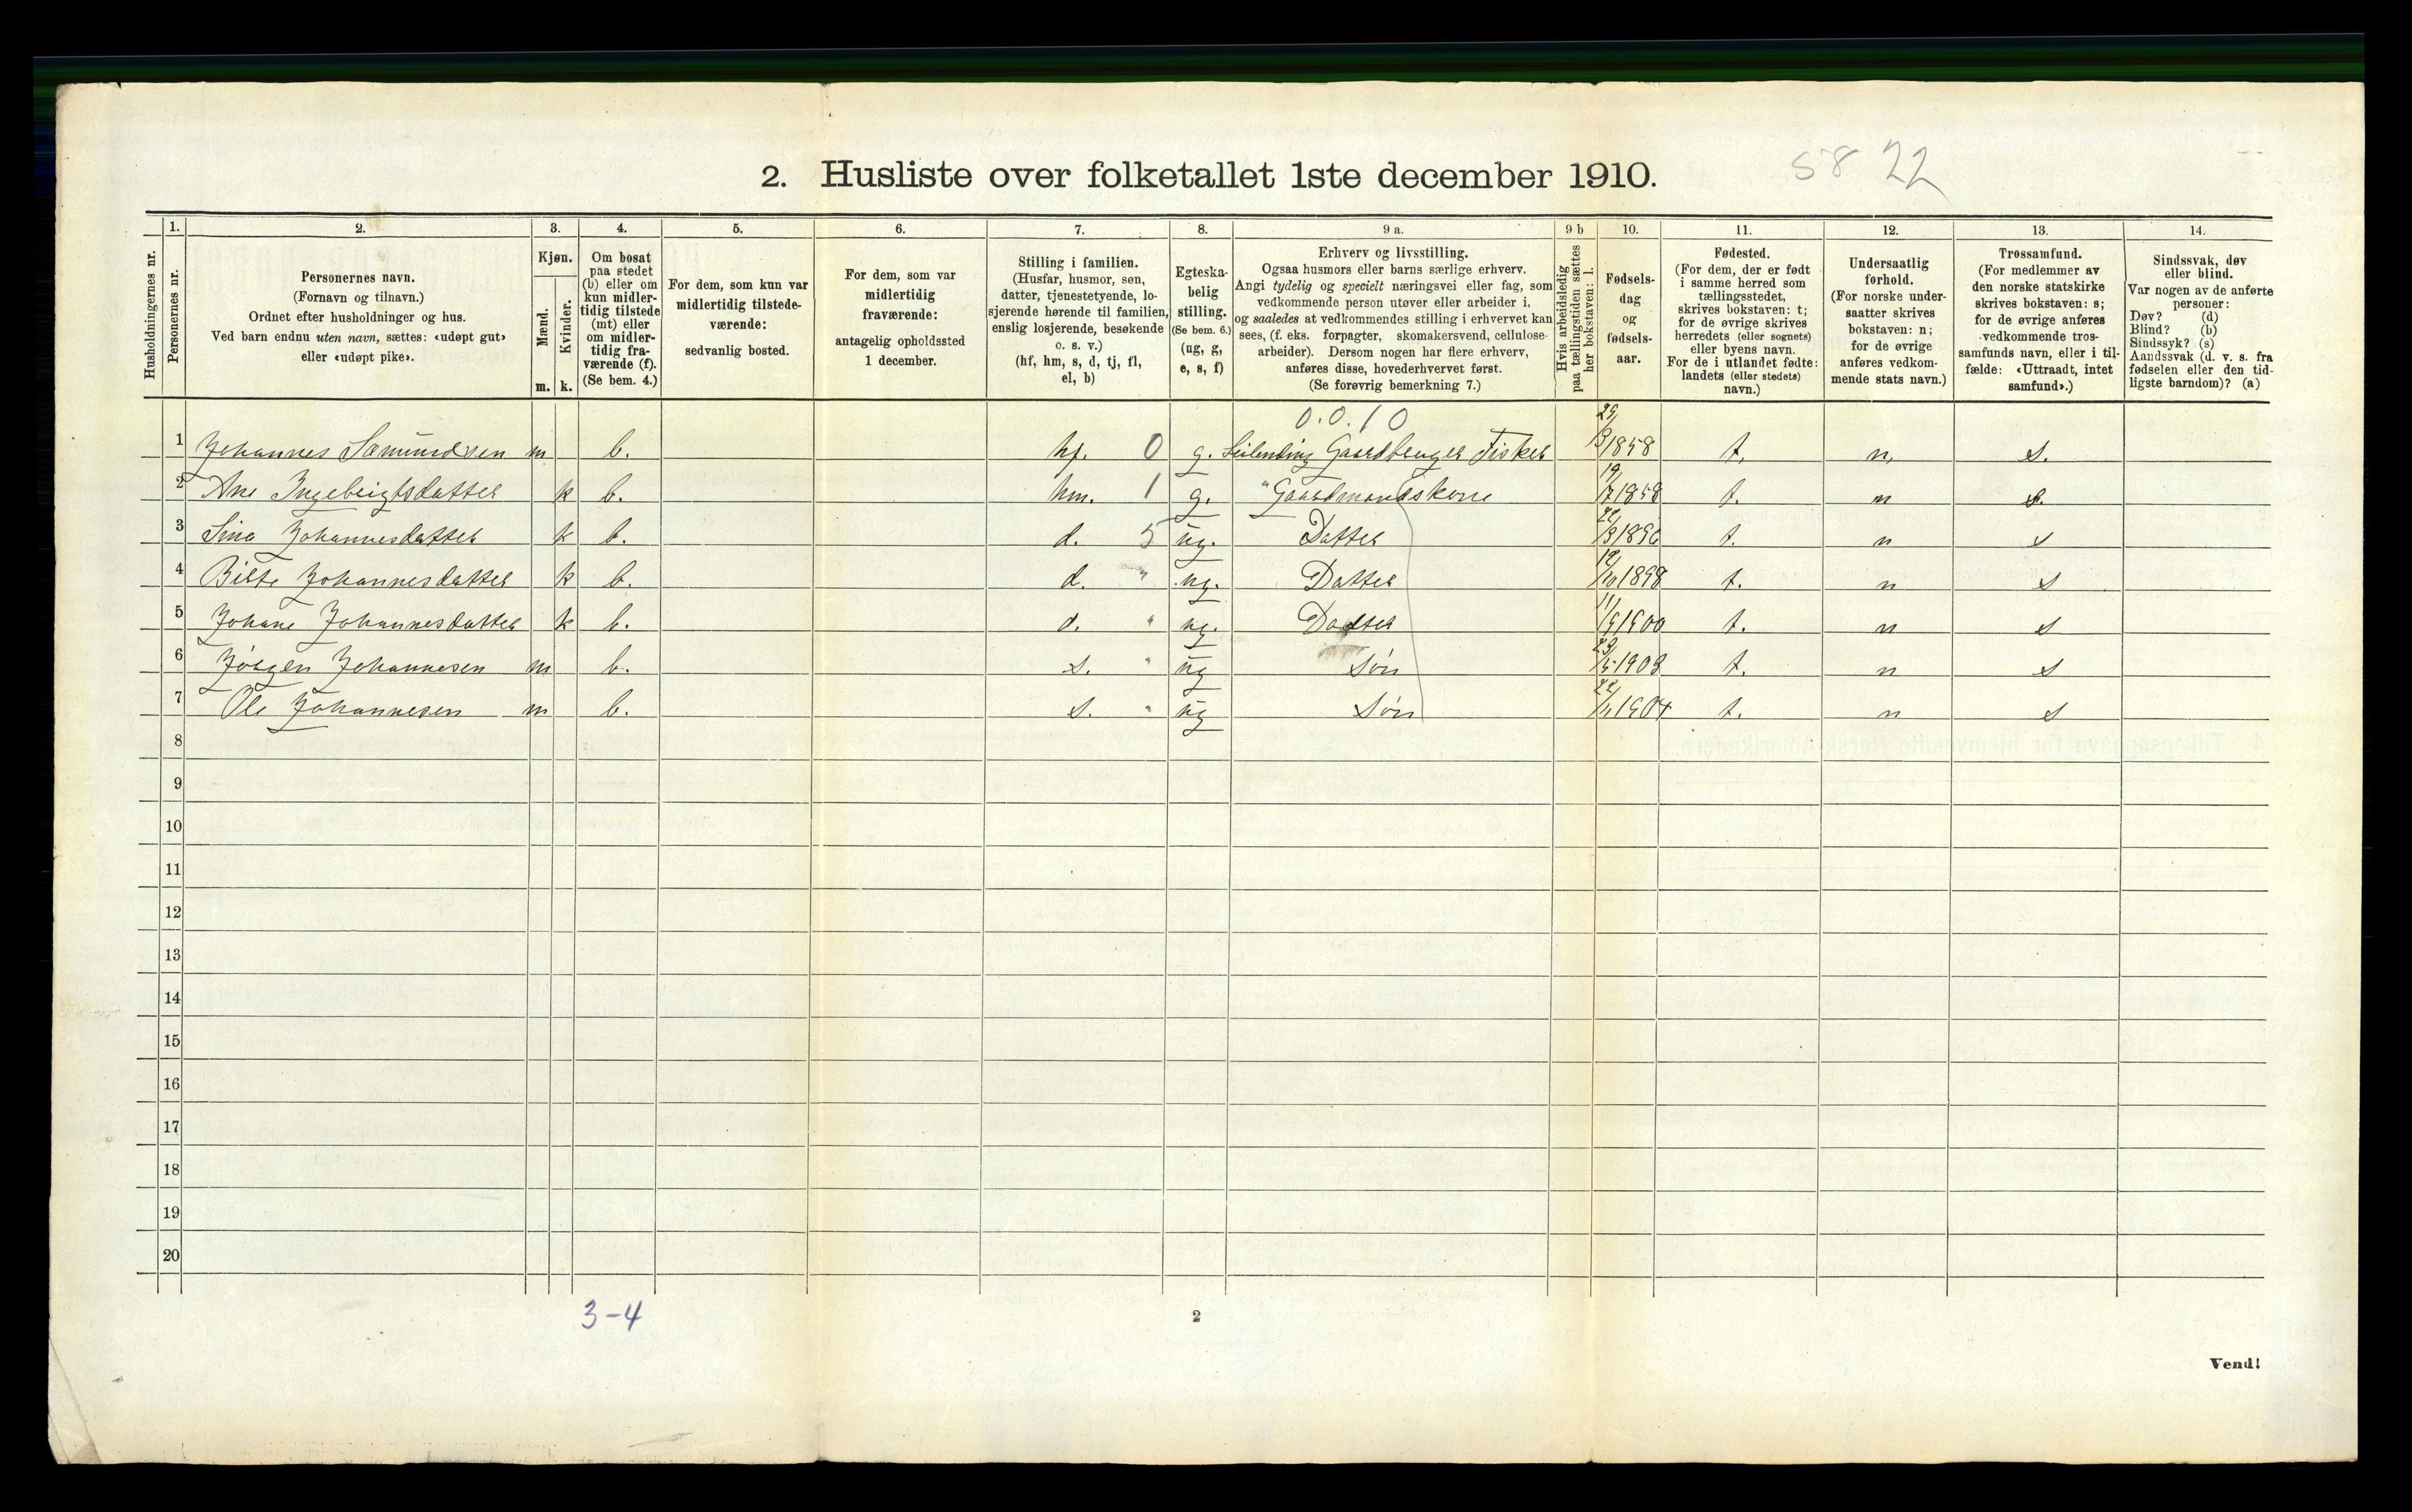 58 22
2. Husliste over folketallet 1ste december 1910.
Husholdningernes nr.
1. Personernes nr.
2. Personernes navn.
(Fornavn og tilnavn.)
Ordnet efter husholdninger og hus.
Ved barn endnu uten navn, sættes: «udøpt gut»
eller «udøpt pike».
3. Kjøn.
Mænd. m.
Kvinder. k.
4. Om bosat
paa stedet
(b) eller om
kun midler-
tidig tilstede
(mt) eller
om midler-
tidig fra-
værende (f).
(Se bem. 4.)
5. For dem, som kun var
midlertidig tilstede-
værende:
sedvanlig bosted.
6. For dem, som var
midlertidig
fraværende:
antagelig opholdssted
1 december.
7. Stilling i familien.
(Husfar, husmor, søn,
datter, tjenestetyende, lo-
sjerende hørende til familien,
enslig losjerende, besøkende
o. s. v.)
(hf, hm, s, d, tj, fl,
el, b)
8. Egteska-
belig
stilling.
(Se bem. 6.)
(ug, g,
e, s, f)
9 a. Erhverv og livsstilling.
Ogsaa husmors eller barns særlige erhverv.
Angi tydelig og specielt næringsvei eller fag, som
vedkommende person utøver eller arbeider i,
og saaledes at vedkommendes stilling i erhvervet kan
sees, (f. eks. forpagter, skomakersvend, cellulose-
arbeider). Dersom nogen har flere erhverv,
anføres disse, hovederhvervet først.
(Se forøvrig bemerkning 7.)
9 b Hvis arbeidsledig
paa tællingstiden sættes
her bokstaven: l.
10. Fødsels-
dag
og
fødsels-
aar.
11. Fødested.
(For dem, der er født
i samme herred som
tællingsstedet,
skrives bokstaven: t;
for de øvrige skrives
herredets (eller sognets)
eller byens navn.
For de i utlandet fødte:
landets (eller stedets)
navn.)
12. Undersaatlig
forhold.
(For norske under-
saatter skrives
bokstaven: n;
for de øvrige
anføres vedkom-
mende stats navn.)
13. Trossamfund.
(For medlemmer av
den norske statskirke
skrives bokstaven: s;
for de øvrige anføres
vedkommende tros-
samfunds navn, eller i til-
fælde: «Uttraadt, intet
samfund».)
14. Sindssvak, døv
eller blind.
Var nogen av de anførte
personer:
Døv? (d)
Blind? (b)
Sindssyk? (s)
Aandssvak (d. v. s. fra
fødselen eller den tid-
ligste barndom)? (a)
0.0.10
1 Johannes Samundsen m b. hf. 0 g. Leilending Gaardbruger Fisker 1858 t. n. s.
2 Ane Ingebrigtsdatter k b. hm. 1 g. " Gaardmandskone 19/7 1858 t. n s.
3 Sina Johannesdatter k b. d. 5 ug. Datter t. n s
4 Birte Johannesdatter k b. d. " ug. Datter 1898 t. n s
5 Johane Johannesdatter k b. d. " ug. Datter 11/9 1900 t. n s
6 Jörgen Johannesen m b. s. " ug Sön 23/5 1903 t. n s
7 Ole Johannesen m b. s. " ug Sön 22/11 1904 t. n s
8
9
10
11
12
13
14
15
16
17
18
19
20
3-4
2
Vend!